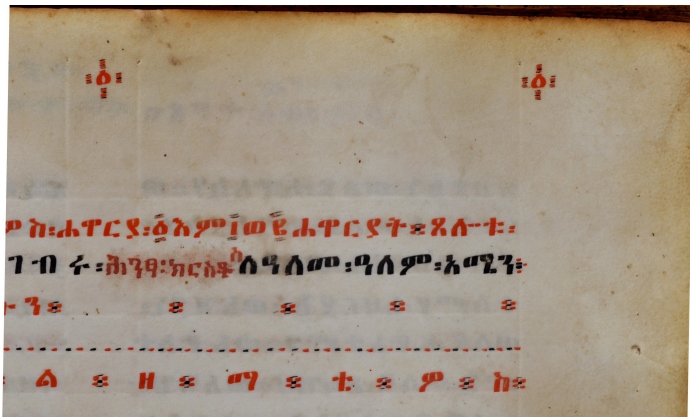 ዕ ዕ
ሐዋርያ፡፩እም፲ወ፪ሐዋርያት፡ጸሎቱ፡
ገብሩ፡ሕንፃ፡ክርስቶስ ለዓለመ፡ዓለም፡አሜን፨
ን፨ ፨ ፨ ፨ ፨
ል ፨ ዘ ፨ ማ ፨ ቴ ፨ ዎ ፨ ስ፨